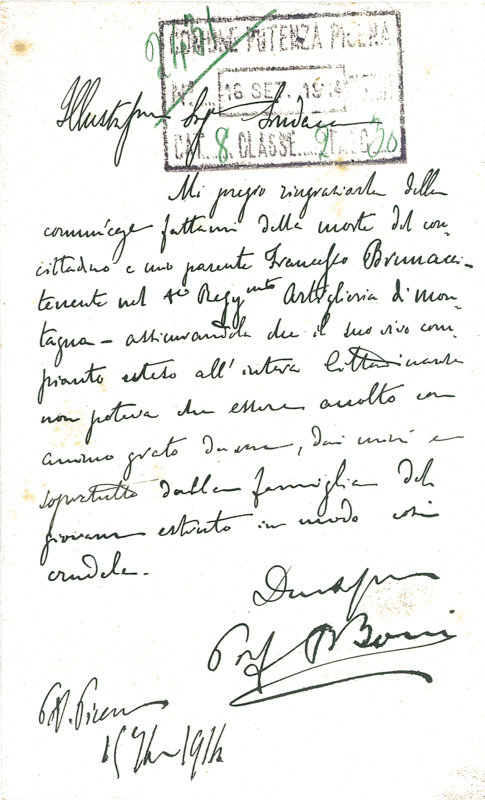 2451
COMUNE POTENZA PICENA
N° 16 SET. 1914
CAT. 8 CLASSE 2 FASC 30
Illustrissmo Sigr Sindaco
Mi pregio ringraziarla della
comunicaze fattami della morte del con-
cittadino e mio parente Francesco Brunacci-
tenente nel Reggmto Artiglieria di mon-
tagna – assicurandola che il suo vivo com-
pianto esteso all'intera Cittadinanza
non poteva che essere accolto con
animo grato da me, dai miei e
sopratutto dalla famiglia del
giovane estinto in modo così
crudele.
Devmo
Prof Boni
P. Picena